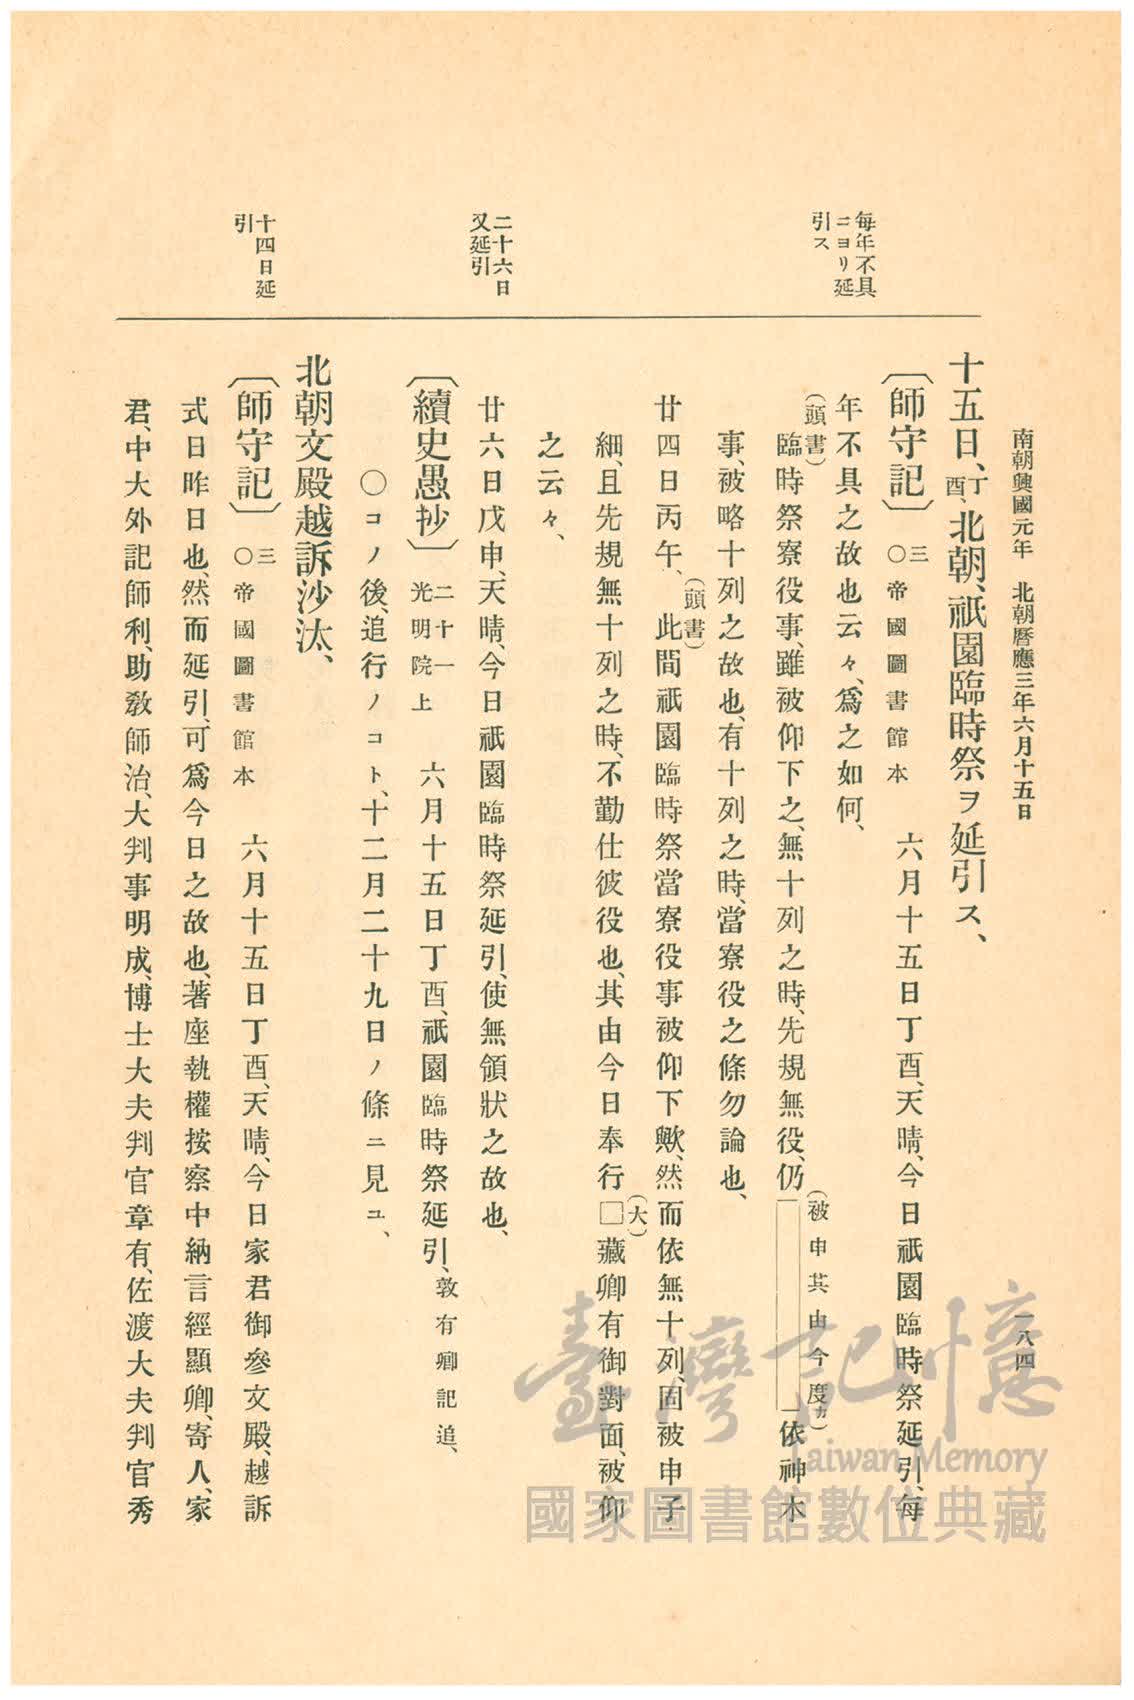 南朝興國元年　北朝曆應三年六月十五日
一八四
每年不具
ニヨリ延
引ス
二十六日
又延引
十四日延
引
十五日、丁酉、北朝、祇園臨時祭ヲ延引ス、
〔師守記〕 三 ○帝國圖書館本　六月十五日丁酉、天晴、今日祇園臨時祭延引、每
年不具之故也云々、爲之如何、
（頭書）
臨時祭寮役事、雖被仰下之、無十列之時、先規無役、仍［　　　］（被申其由今度カ）依神木
事、被略十列之故也、有十列之時、當寮役之條勿論也、
廿四日丙午、（頭書）此間祇園臨時祭當寮役事被仰下歟、然而依無十列、固被申子
細、且先規無十列之時、不勤仕彼役也、其由今日奉行□（大）藏卿有御對面、被仰
之云々、
廿六日戊申、天晴、今日祇園臨時祭延引、使無領狀之故也、
〔續史愚抄〕 二十一 光明院上　六月十五日丁酉、祇園臨時祭延引、敦有卿記追、
○コノ後、追行ノコト、十二月二十九日ノ條ニ見ユ、
北朝文殿越訴沙汰、
〔師守記〕 三 ○帝國圖書館本　六月十五日丁酉、天晴、今日家君御參文殿、越訴
式日昨日也、然而延引、可爲今日之故也、著座執權按察中納言經顯卿、寄人、家
君、中大外記師利、助敎師治、大判事明成、博士大夫判官章有、佐渡大夫判官秀
臺灣記憶
Taiwan Memory
國家圖書館數位典藏